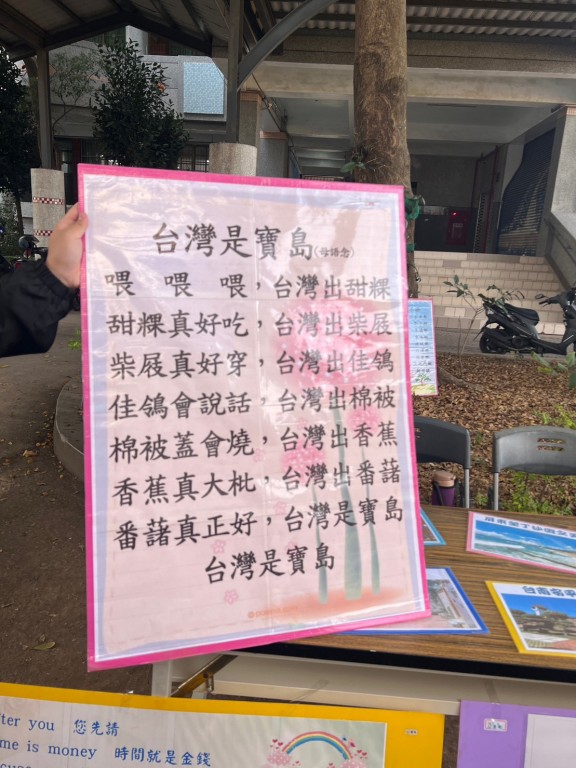 台灣是寶島(母語念)
喂 喂 喂，台灣出甜粿
甜粿真好吃，台灣出柴屐
柴屐真好穿，台灣出佳鴒
佳鴒會說話，台灣出棉被
棉被蓋會燒，台灣出香蕉
香蕉真大枇，台灣出番藷
番藷真正好，台灣是寶島
台灣是寶島
fter you 您先請
me is money 時間就是金錢